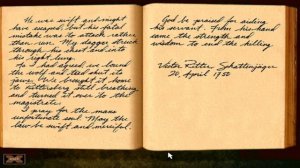 He was swift and might
have escaped, but his fatal
mistake was to attack rather
than run. My dagger struck
through his chest and into
his right lung.
As I had agreed we bound
the wolf and tied shut its
jaws. We brought it home
to Rittersberg still breathing
and turned over to the
magistrate.
I pray for the man's
unfortunate soul. May the
law be swift and merciful.
God be praised for aiding
his servant. From his hand
came the strength and
wisdom to end the killing.
Victor Ritter, Schattenjäger
20, April 1750